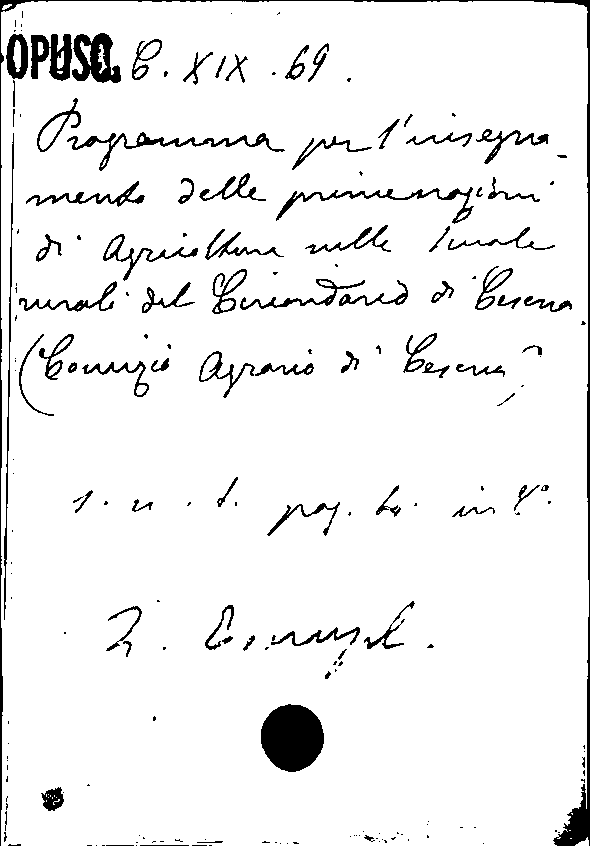 OPUSC. C. XIX. 69.
Programma per l'insegna-
mento delle prime nozioni
di Agricoltura nelle Scuole
rurali del Circondario di Cesena.
(Comizio Agrario di Cesena)
s. n. t. pag. in 8°.
2. Esempl.